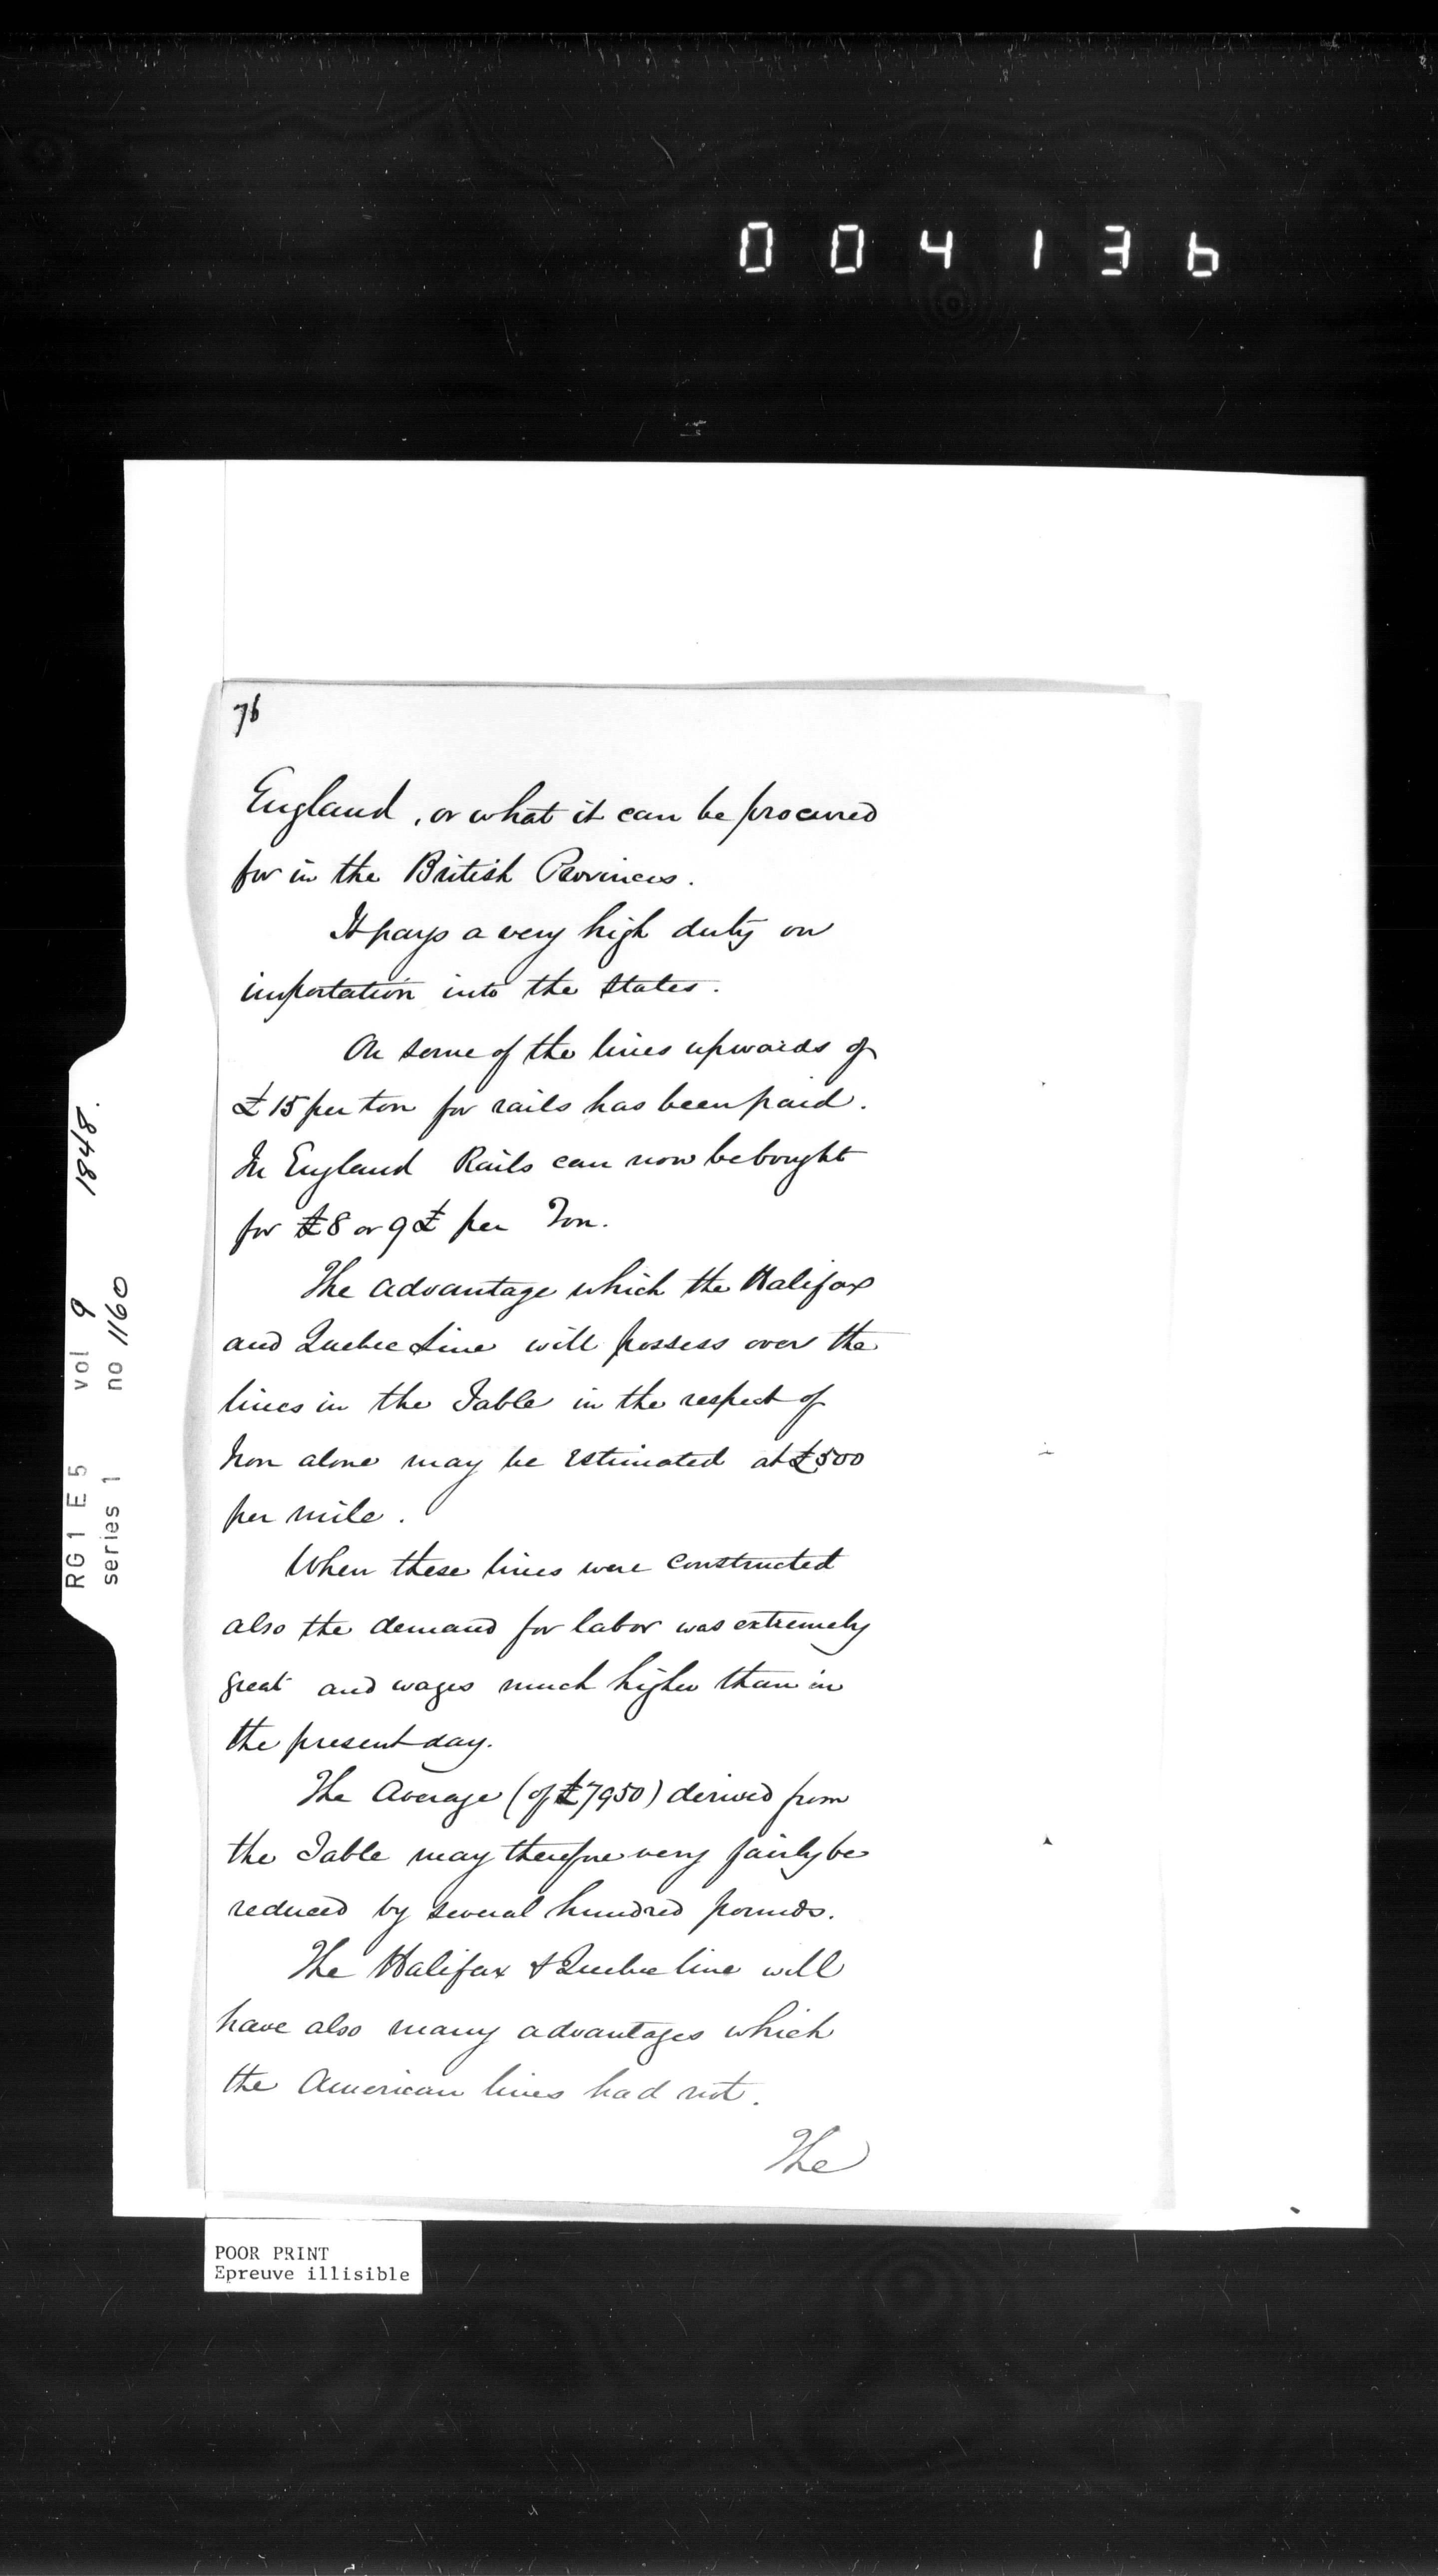 004136
76
England, or what it can be procured
for in the British Provinces.
It pays a very high duty on
importation into the States.
On some of the lines upwards of
£15 per ton for rails has been paid.
In England Rails can now be bought
for £8 or 9£ per Ton.
The advantage which the Halifax
and Quebec Line will possess over the
lines in the Table in the respect of
Iron alone may be estimated at £500
per mile.
When these lines were constructed
also the demand for labor was extremely
great and wages much higher than in
the present day.
The Average (of £7950) derived from
the Table may therefore very fairly be
reduced by several hundred pounds.
The Halifax & Quebec line will
have also many advantages which
the American lines had not.
The
RG1 E5 vol 9 1848.
series 1 no 1160
POOR PRINT
Epreuve illisible